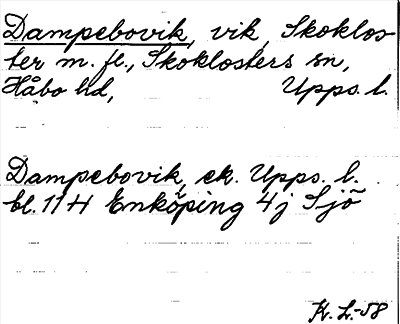 Dampebovik, vik, Skoklos-
ter m. fl., Skoklosters sn,
Håbo hd, Upps. l.
Dampebovik, ek. Upps. l.
bl. 11 H Enköping 4j Sjö
K. L.-58